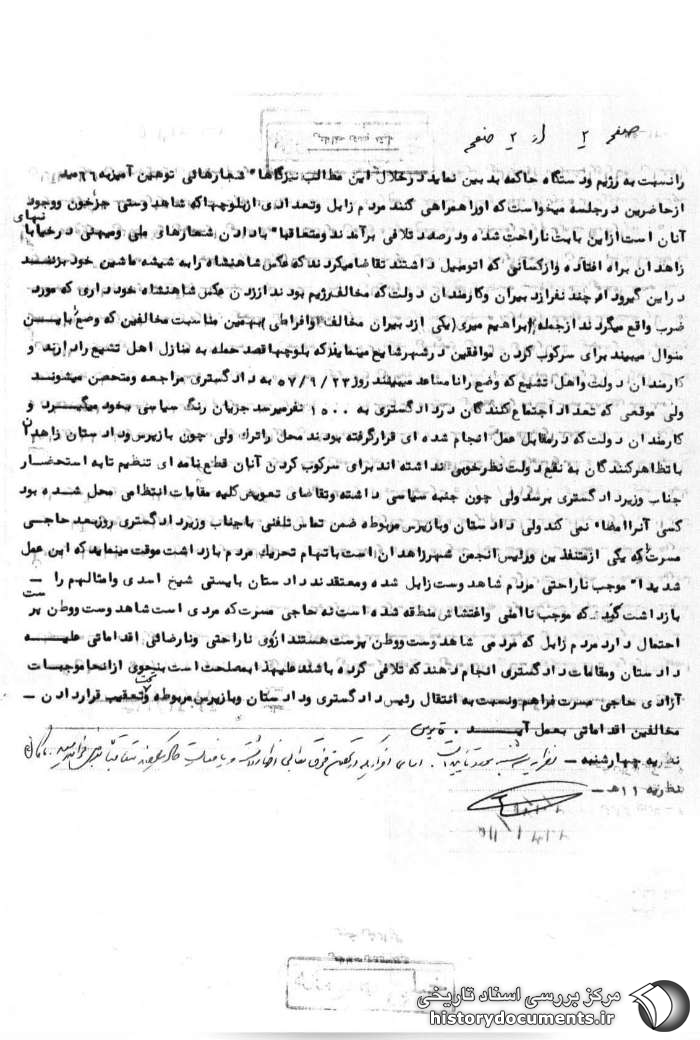 صفحه ۲ از ۲ صفحه
را نسبت به رژیم و دستگاه حاکمه بد بین نماید در خلال این مطالب نیز گاها" شعارهائی توهین آمیز به ۶۶ میداد
از حاضرین در جلسه میخواست که او را همراهی کنند مردم زابل و تعدادی از بلوچها که شاهدوستی جز خون و وجود
آنان است از این بابت ناراحت شده و در صدد تلافی برآمدند و متعاقبا" با دادن شعارهای ملی و میهنی در خیابانهای
زاهدان براه افتاده و از کسانی که اتومبیل داشتند تقاضا میکردند که عکس شاهنشاه را به شیشه ماشین خود بزنند
در این گیرودار چند نفر از دبیران و کارمندان دولت که مخالف رژیم بودند از زدن عکس شاهنشاه خودداری که مورد
ضرب واقع میگردند از جمله (ابراهیم میری) یکی از دبیران مخالف (وافراطی) بهمین مناسبت مخالفین که وضع را باین
منوال میبیند برای سرکوب کردن موافقین در شهر شایع مینمایند که بلوچها قصد حمله به منازل اهل تشیع را دارند و
کارمندان دولت و اهل تشیع که وضع را نامساعد میبینند روز ۵۷/۹/۲۳ به دادگستری مراجعه و متحصن میشوند
ولی موقعی که تعداد اجتماع کنندگان در دادگستری به ۱۰۰۰ نفر میرسد جریان رنگ سیاسی بخود میگیرد و
کارمندان دولت که در مقابل عمل انجام شده ای قرار گرفته بودند محل را ترک ولی چون بازپرس و دادستان زاهدان
با تظاهرکنندگان به نفع دولت نظر خوبی نداشته اند برای سرکوب کردن آنان قطع نامه ای تنظیم تا به استحضار
جناب وزیر دادگستری برسد ولی چون جنبه سیاسی داشته و تقاضای تعویض کلیه مقامات انتظامی محل شده بود
کسی آنرا امضا" نمی کند ولی دادستان و بازپرس مربوطه ضمن تماس تلفنی با جناب وزیر دادگستری روز بعد حاجی
مسرت که یکی از متنفذین و رئیس انجمن شهر زاهدان است با تهام تحریک مردم بازداشت موقت مینماید که این عمل
شدیدا" موجب ناراحتی مردم شاهدوست زابل شده و معتقدند دادستان بایستی شیخ اسدی و امثالهم را –
بازداشت کند که موجب ناامنی و اغتشاش منطقه شده است نه حاجی مسرت که مردی است شاهدوست و وطن پرست
احتمال دارد مردم زابل که مردمی شاهدوست و وطن پرست هستند از روی ناراحتی و نارضائی اقداماتی علیه
دادستان و مقامات دادگستری انجام دهند که تلافی کرده باشند علیهذا بمصلحت است بنحوی از انحا موجبات
آزادی حاجی مسرت فراهم و نسبت به انتقال رئیس دادگستری و دادستان و بازپرس مربوطه و تحت تعقیب قرار دادن –
مخالفین اقداماتی بعمل آید .
نظریه چهارشنبه –
نظریه ۱۱ ه –
مرکز بررسی اسناد تاریخی
historydocuments.ir